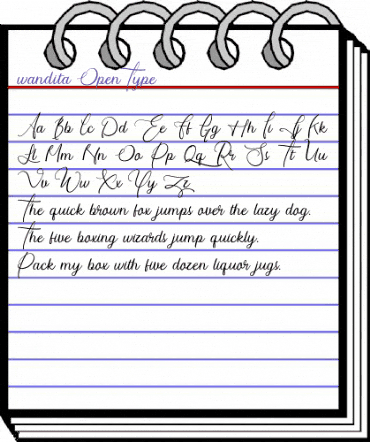 wandita Open Type
Aa Bb Cc Dd Ee Ff Gg Hh Ii Jj Kk
Ll Mm Nn Oo Pp Qq Rr Ss Tt Uu
Vv Ww Xx Yy Zz
The quick brown fox jumps over the lazy dog.
The five boxing wizards jump quickly.
Pack my box with five dozen liquor jugs.